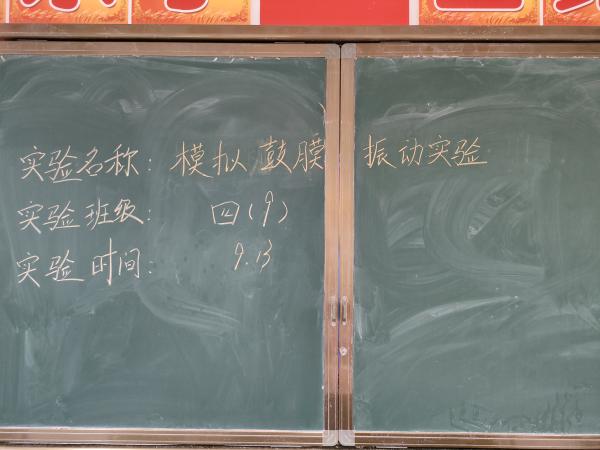 实验名称：模拟鼓膜振动实验
实验班级：四(9)
实验时间：9.13